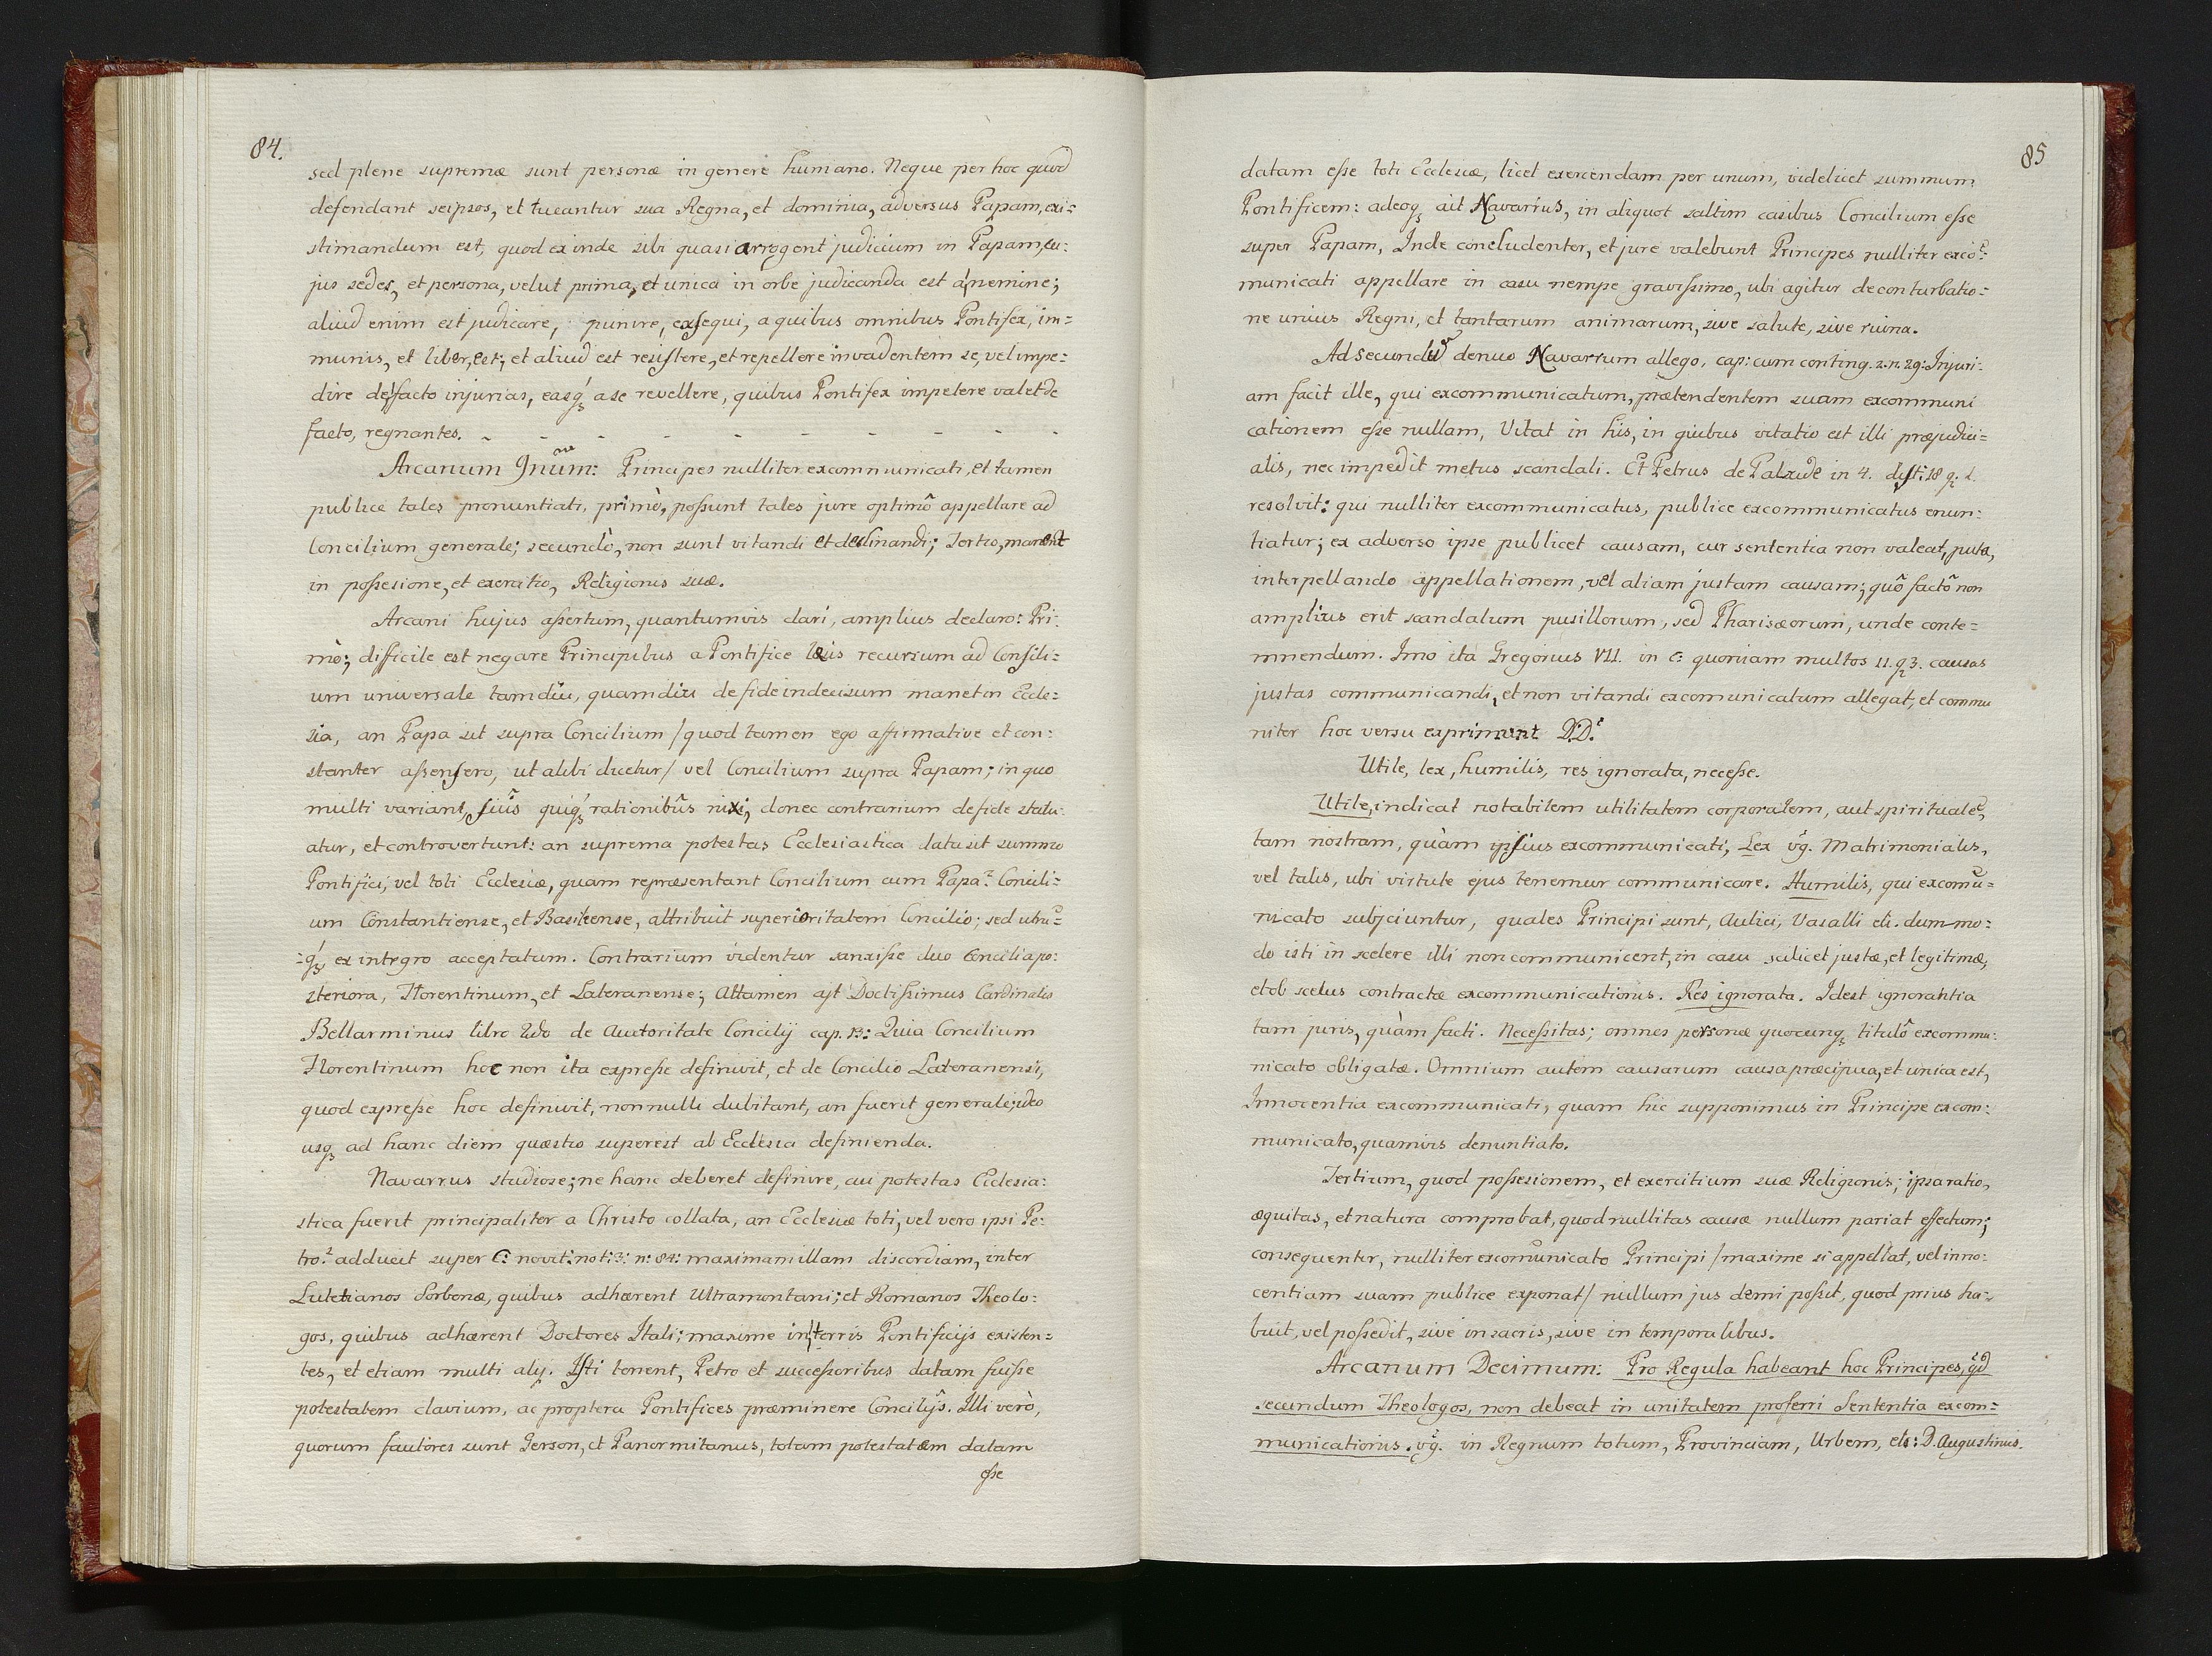 84.
sed plene supremæ sunt personæ in genere humano. Neque per hoc quod
defendant seipsos, et tueantur sua Regna, et dominia, adversus Papam, exi=
stimandum est, quod exinde sibi quasi arrogent judicium in Papam, cu:
jus sedes, et persona, velut prima, et unica in orbe judicanda est à nemine;
aliud enim est judicare, punire, exsequi, a quibus omnibus Pontifex, im=
munis, et liber, est; et aliud est resistere, et repellere invadentem se, vel impe=
dire de facto injurias, easq́ꝫ a se revellere, quibus Pontifex impetere valet de
facto, regnantes. - - - - - - - - -
Arcanum 9num: Principes nulliter excommunicati, et tamen
publice tales pronuntiati, primò, possunt tales jure optimô appellare ad
Concilium generale; secundò, non sunt vitandi et declinandi; Tertio, manent
in possesione, et exercitio, Religionis suæ.
Arcani hujus assertum, quantumvis clari, amplius declaro: Pri:
mò; difficile est negare Principibus a Pontifice læis recursum ad Consili=
um universale tamdiu, quamdiu de fide indecisum manet in Eccle=
sia, an Papa sit supra Concilium / quod tamen ego affirmative et con:
stanter assensero, ut alibi dicetur / vel Concilium supra Papam; in quo
multi variant, suis quiq́ꝫ rationibus nixi, donec contrarium de fide statu:
atur, et controvertunt: an suprema potestas Ecclesiastica data sit summo
Pontifici, vel toti Ecclesiæ, quam repræsentant Concilium cum Papa? Concili=
um Constantiense, et Basileense, attribuit superioritatem Concilio; sed utrū=
=q́ꝫ ex integro acceptatum. Contrarium videntur sanxisse duo Concilia po:
steriora, Florentinum, et Lateranense; Attamen ajt Doctissimus Cardinalis
Bellarminus libro 2do de Auctoritate Concilij cap. 13: Quia Concilium
Florentinum hoc non ita expresse definivit, et de Concilio Lateranensi,
quod expresse hoc definivit, nonnulli dubitant, an fuerit generale; ideo
usqꝫ ad hanc diem quæstio superest ab Ecclesia definienda.
Navarrus studiose; ne hanc deberet definire, cui potestas Ecclesia:
stica fuerit principaliter a Christo collata, an Ecclesiæ toti, vel vero ipsi Pe:
tro? adducit super C: novit: not: 3: n: 84: maximam illam discordiam, inter
Lutetianos Sorbonæ, quibus adhærent Ultramontani; et Romanos Theolo:
gos, quibus adhærent Doctores Itali; maxime in terris Pontificijs existen=
tes, et etiam multi alij. Isti tenent, Petro et successoribus datam fuisse
potestatem clavium, ac propterea Pontifices præminere Concilijs. Illi verò,
quorum fautores sunt Gerson, et Panormitanus, totam potestatem datam
esse
85
datam esse toti Ecclesiæ, licet exercendam per unum, videlicet summum
Pontificem: adeoqꝫ ait Navarrus, in aliquot saltim casibus Concilium esse
super Papam, Inde concludenter, et jure valebunt Principes nulliter exco=
municati appellare in casu nempe gravissimo, ubi agitur de conturbatio=
ne unius Regni, et tantarum animarum, sive salute, sive ruina.
Ad secundū denuo Navarrum allego, cap: cum conting. 2. n. 29: Injuri=
am facit ille, qui excommunicatum, prætendentem suam excommuni
cationem esse nullam, Vitat in his, in quibus vitatio est illi præjudici=
alis, nec impedit metus scandali. Et Petrus de Palude in 4. dist: 18 q: 1.
resolvit: qui nulliter excommunicatus, publice excommunicatus enun=
tiatur; ex adverso ipse publicet causam, cur sententia non valeat, puta,
interpellando appellationem, vel aliam justam causam; quô factô non
amplius erit scandalum pusillorum, sed Pharisæorum, unde conte=
mnendum. Imo ita Gregorius VII. in C: quoniam multos 11. q 3. causas
justas communicandi, et non vitandi excomunicatum allegat, et commu
niter hoc versu exprimunt DD.
Utile, lex, humilis, res ignorata, necesse.
Utile, indicat notabilem utilitatem corporalem, aut spiritualē,
tam nostram, quàm ipsius excommunicati, Lex vg. Matrimonialis,
vel talis, ubi virtute ejus tenemur communicare. Humilis, qui excomū=
nicato subjciuntur, quales Principi sunt, Aulici, Vasalli etc. dum mo:
do isti in scelere illi non communicent, in casu scilicet justæ, et legitimæ,
et ob scelus contractæ excommunicationis. Res ignorata. Idest ignorantia
tam juris, quàm facti. Necessitas; omnes personæ quocunqꝫ titulô excommu:
nicato obligatæ. Omnium autem causarum causa præcipua, et unica est,
Innocentia excommunicati, quam hic supponimus in Principe excom:
municato, quamvis denuntiato.
Tertium, quod possesionem, et exercitium suæ Religionis; ipsa ratio,
æquitas, et natura comprobat, quod nullitas causæ nullum pariat effectum;
consequenter, nulliter excomūnicato Principi / maxime si appellat, vel inno:
centiam suam publice exponat / nullum jus demi possit, quod prius ha=
buit, vel possedit, sive in sacris, sive in temporalibus.
Arcanum Decimum: Pro Regula habeant hoc Principes, qd
secundum Theologos, non debeat in unitatem proferri Sententia excom=
municationis. vg. in Regnum totum, Provinciam, Urbem, etc: D. Augustinus.